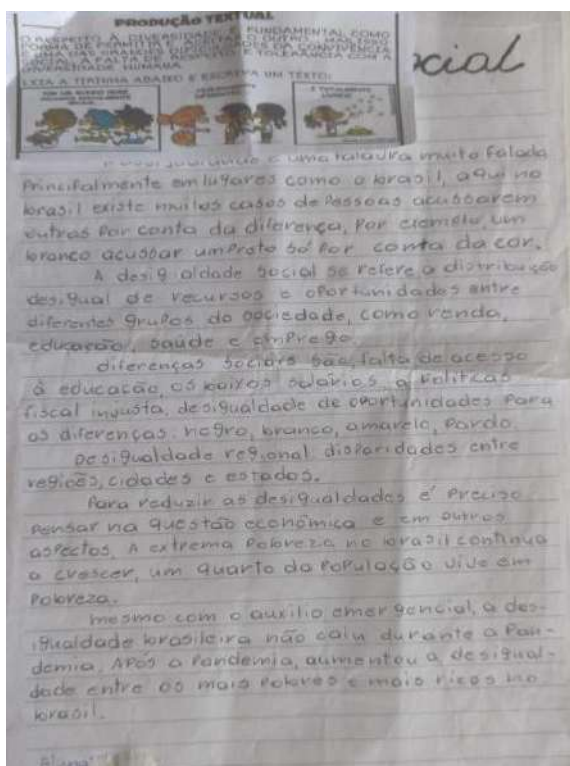 PRODUÇÃO TEXTUAL
O RESPEITO À DIVERSIDADE É FUNDAMENTAL COMO
FORMA DE PERMITIR E ACEITAR O OUTRO. MAS ISSO
É UMA DAS GRANDES DIFICULDADES DA CONVIVÊNCIA
SOCIAL: A FALTA DE RESPEITO E TOLERÂNCIA COM A
DIVERSIDADE HUMANA.
LEIA A TIRINHA ABAIXO E ESCREVA UM TEXTO:
ocial
é uma talavra muito falada
Principalmente em lugares como o brasil, aqui no
brasil existe muitos casos de Pessoas acussarem
outras Por conta da diferença, Por exemplo, um
branco acussar um Preto só Por conta da cor.
A desig aldade social se refere a distribuição
desigual de recursos e oPortunidades entre
diferentes gruPos da sociedade, como renda,
educação, saúde e emPrego.
diferenças sociais são, falta de acesso
à educação, os baixos salários, a Políticas
fiscal injusta, desigualdade de oportunidades Para
as diferenças: negro, branco, amarelo, Pardo.
Desigualdade regional disparidades entre
regiões, cidades e estados.
Para reduzir as desigualdades é Preciso
Pensar na questão econômica e em outros
asPectos, A extrema Pobreza no brasil continua
a crescer, um quarto da PoPulação vive em
Pobreza.
mesmo com o auxílio emergencial, a des-
igualdade brasileira não caiu durante a Pan-
demia, APós a Pandemia, aumentou a desigual-
dade entre os mais Pobres e mais ricos no
brasil.